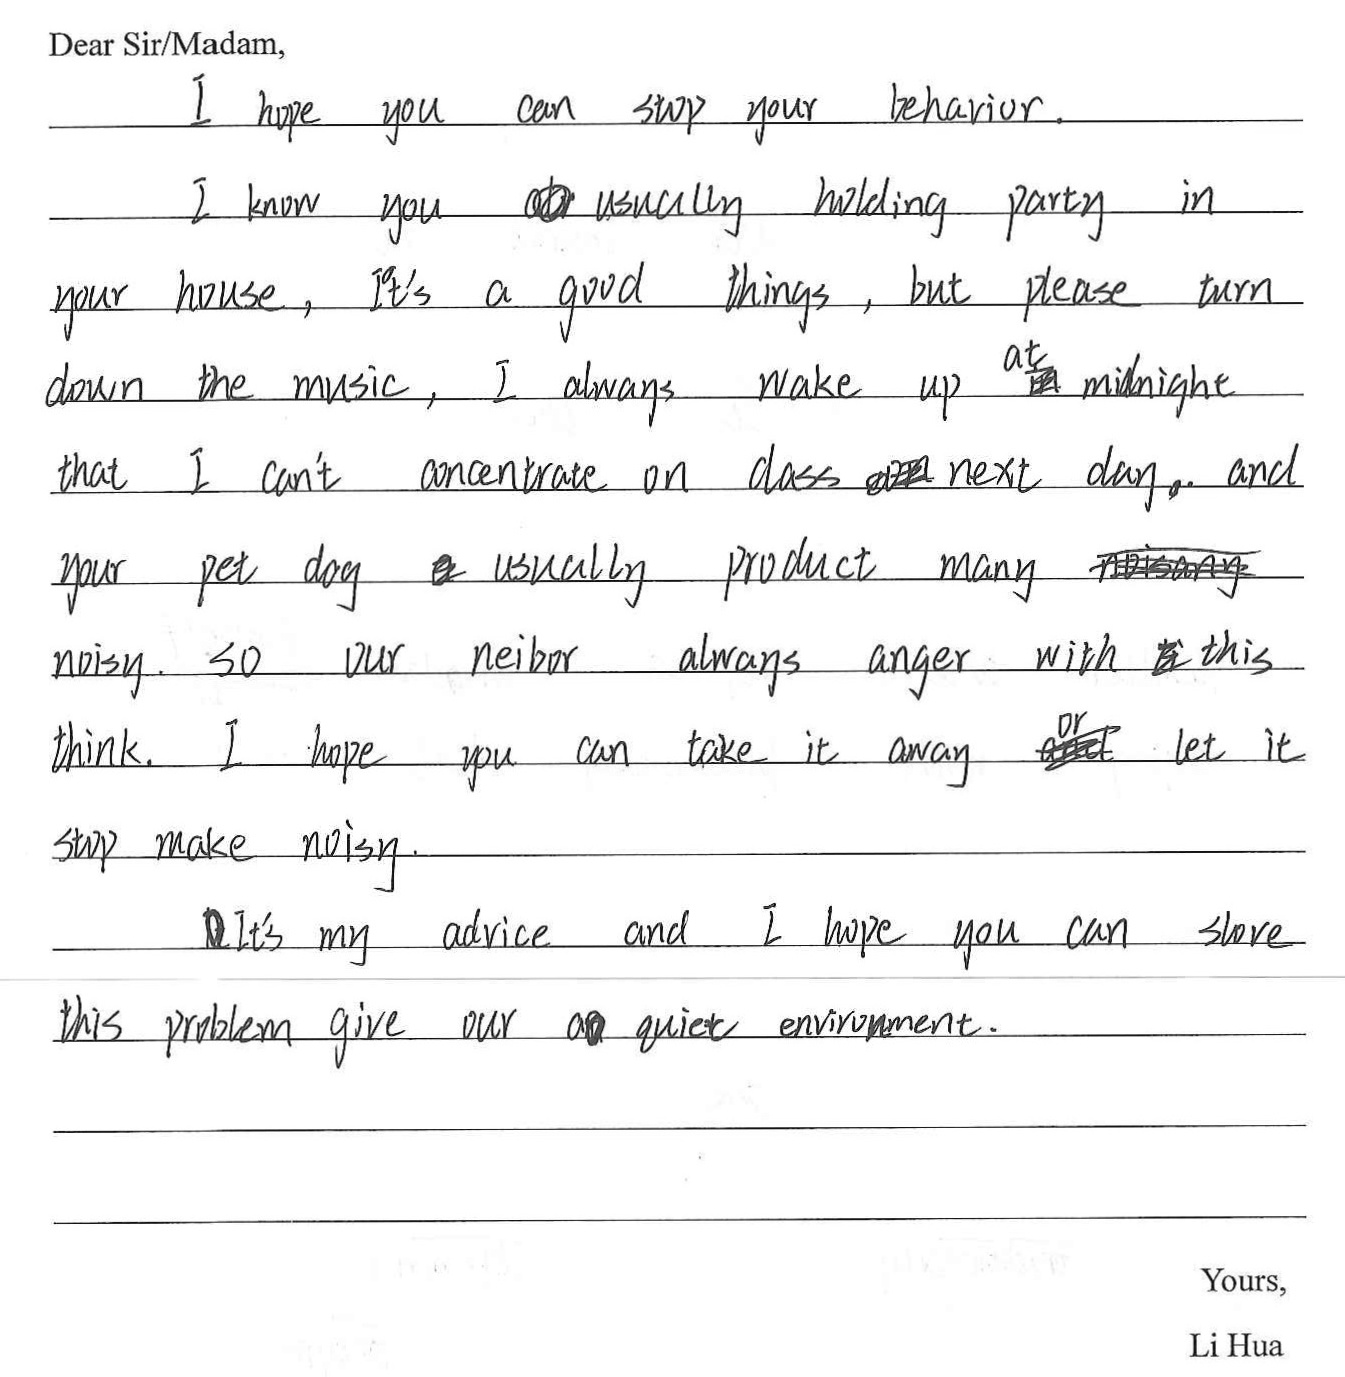 Dear Sir/Madam,
I hope you can stop your behavior.
I know you usually holding party in
your house, It's a good things, but please turn
down the music, I always wake up at midnight
that I can't concentrate on class next day. and
your pet dog usually product many
noisy. so our neibor always anger with this
think. I hope you can take it away or let it
stop make noisy.
It's my advice and I hope you can slove
this problem give our a quiet environment.
Yours,
Li Hua